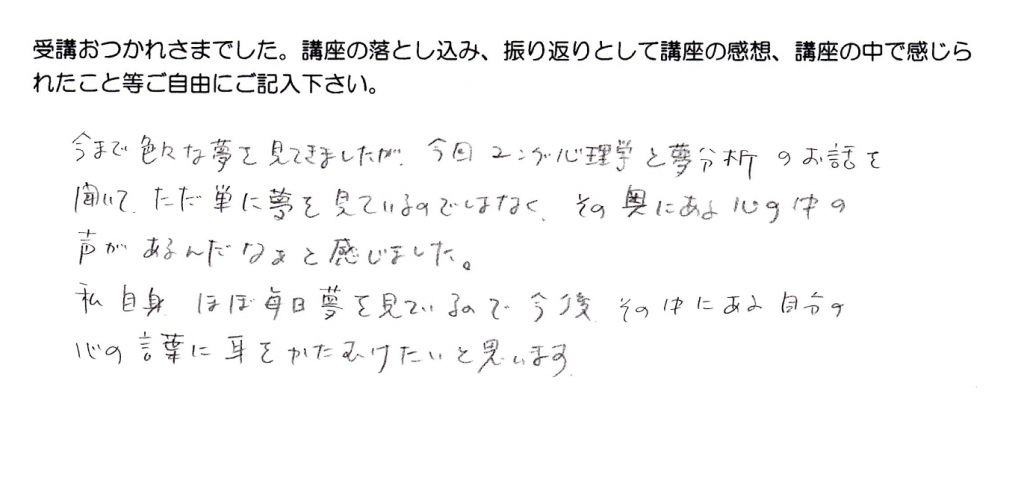 受講おつかれさまでした。講座の落とし込み、振り返りとして講座の感想、講座の中で感じら
れたこと等ご自由にご記入下さい。
今まで色々な夢を見てきましたが、今回ユング心理学と夢分析のお話を
聞いて、ただ単に夢を見ているのではなく、その奥にある心の中の
声があるんだなぁと感じました。
私自身ほぼ毎日夢を見ているので今後その中にある自分の
心の言葉に耳をかたむけたいと思います